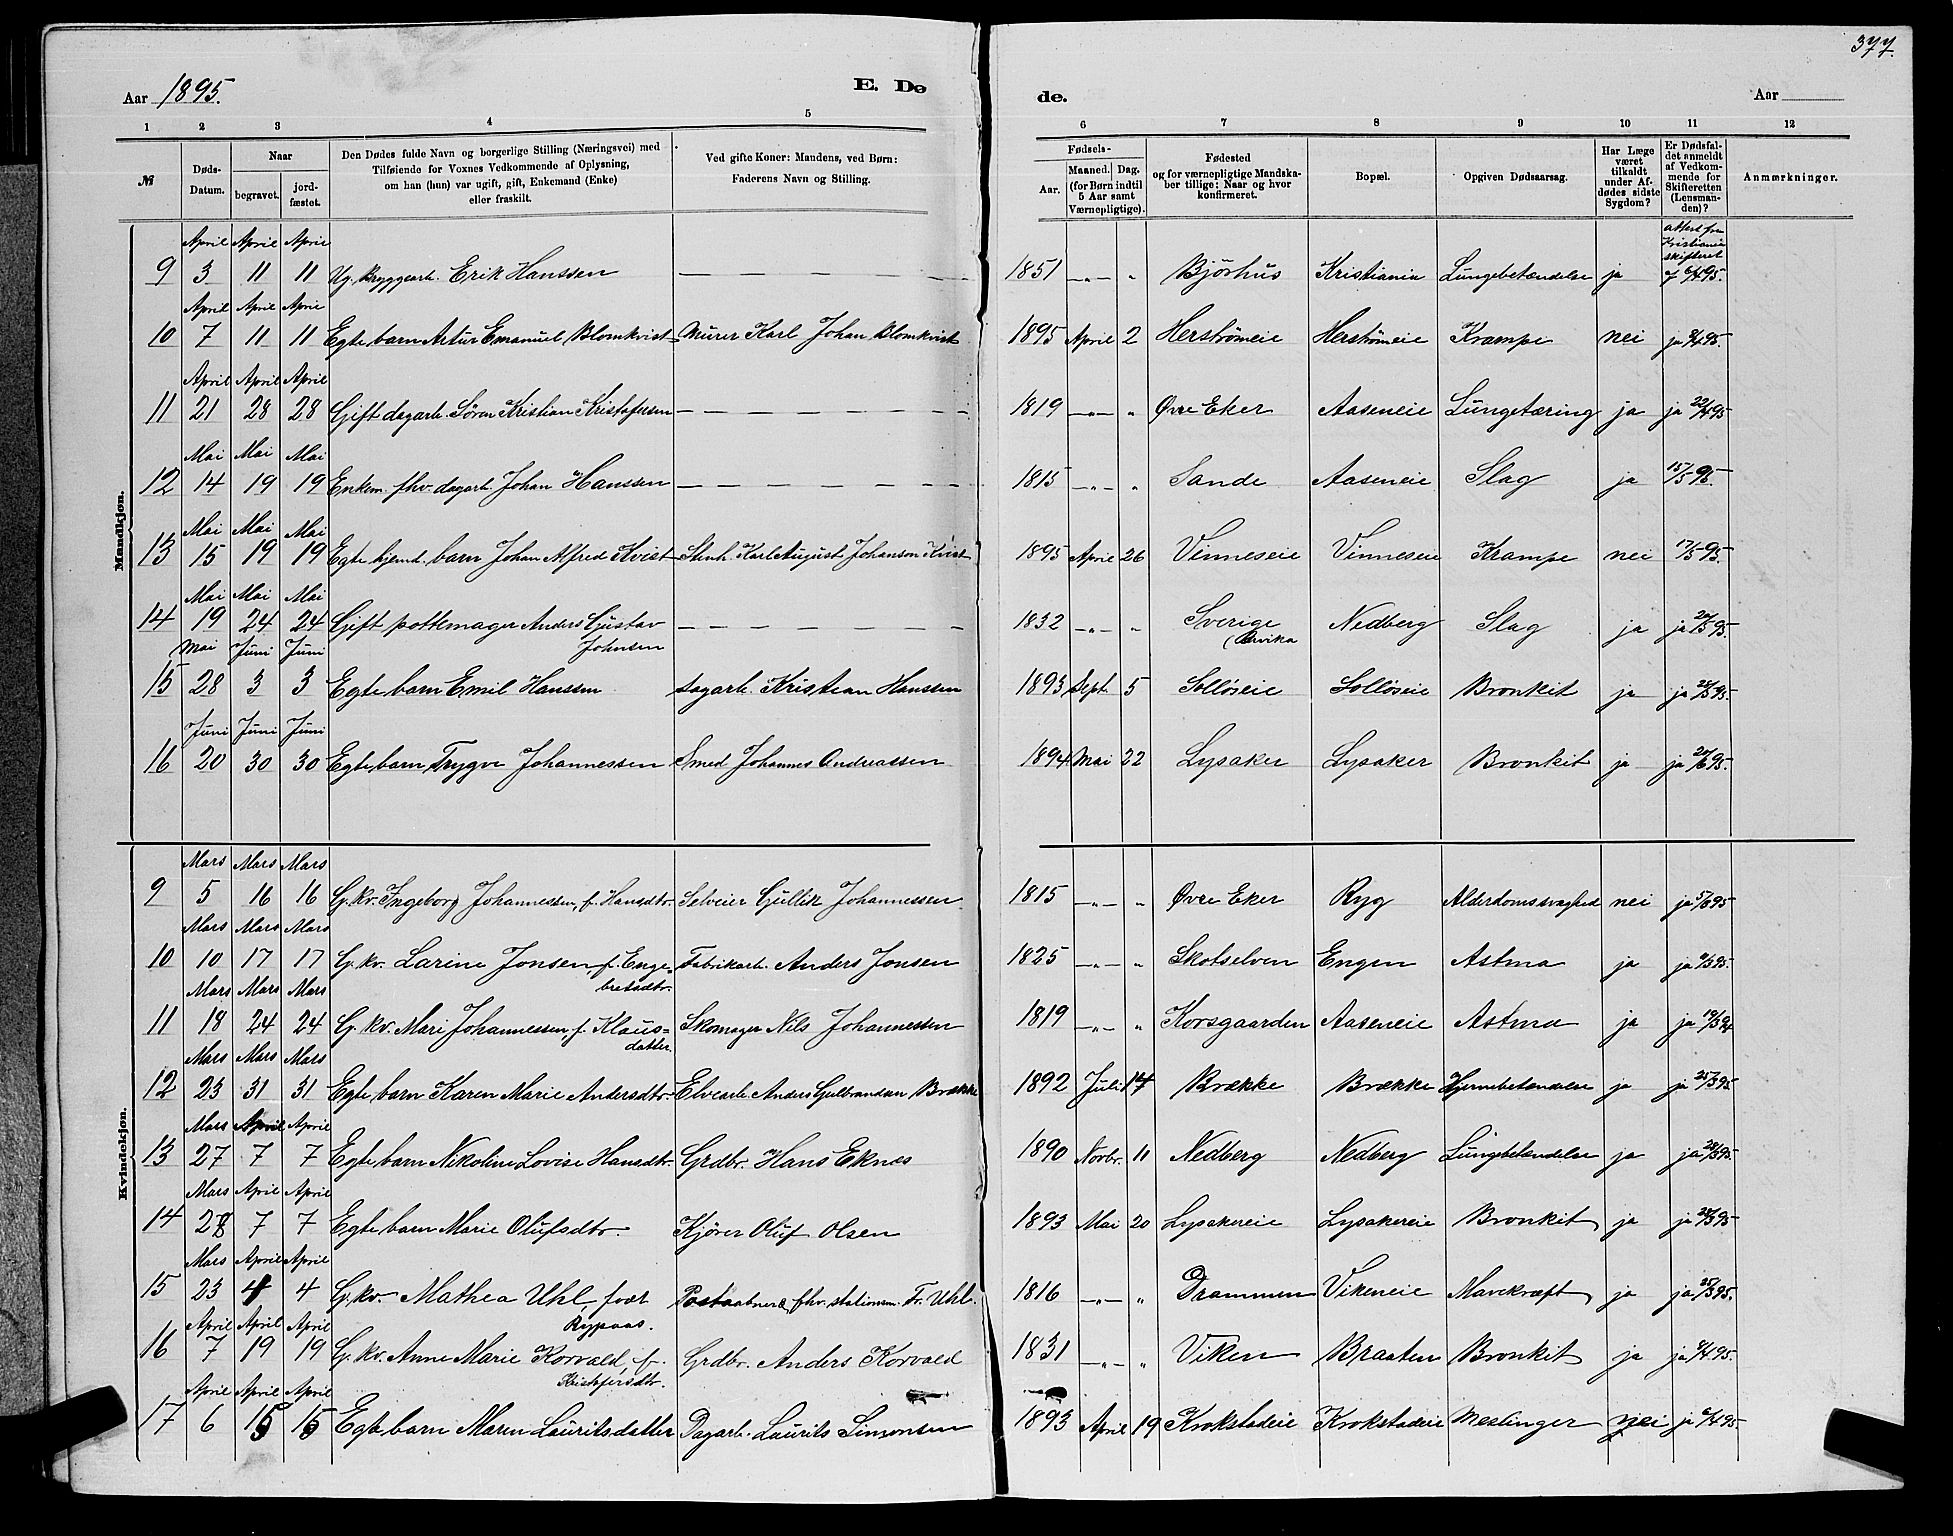 377.
Aar 1895. E. Dø de. Aar
1 2 3 4 5 6 7 8 9 10 11 12
№ Døds-Datum. Naar begravet. jordfæstet. Den Dødes fulde Navn og borgerlige Stilling (Næringsvei) med Tilføiende for Voxnes Vedkommende af Oplysning, om han (hun) var ugift, gift, Enkemand (Enke) eller fraskilt. Ved gifte Koner: Mandens, ved Børn: Faderens Navn og Stilling. Fødsels- Aar. Maaned. Dag. (for Børn indtil 5 Aar samt Værnepligtige). Fødested og for værnepligtige Mandskaber tillige: Naar og hvor konfirmeret. Bopæl. Opgiven Dødsaarsag. Har Læge været tilkaldt under Afdødes sidste Sygdom? Er Dødsfaldet anmeldt af Vedkommende for Skifteretten (Lensmanden)? Anmærkninger.
Mandkjøn.
April April April attest fra Kristiania skifteret
9 3 11 11 Ug. Bryggearb. Erik Hanssen — — — 1851 —„— „ Bjørhus Kristiania Lungebetændelse ja af 6/4 95.
April April April
10 7 11 11 Egte barn Artur Emanuel Blomkvist Murer Karl Johan Blomkvist 1895 April 2 Herstrømeie Herstrømeie Krampe nei ja 9/4 95.
April April April
11 21 28 28 Gift dagarb. Søren Kristian Kristofersen — — — 1819 —„— „ Øvre Eker Aaseneie Lungetæring ja ja 22/4 95
Mai Mai Mai
12 14 19 19 Enkem. fhv. dagarb. Johan Hanssen — — — 1815 —„— „ Sande Aaseneie Slag ja 15/5 95.
Mai Mai Mai
13 15 19 19 Egte hjemd. barn Johan Alfred Kvist Stenh. Karl August Johansen Kvist 1895 April 26 Vinneseie Vinneseie Krampe nei 17/5 95.
Mai Mai Mai
14 19 24 24 Gift pottemager Anders Gustav Johnsen — — — 1832 —„— „ Sverige (Arvika Nedberg Slag ja ja 20/5 95.
Mai Juni Juni
15 28 3 3 Egte barn Emil Hanssen Sagarb. Kristian Hanssen 1893 Sept. 5 Solløseie Solløseie Bronkit ja ja 28/5 95.
Juni Juni Juni
16 20 30 30 Egte barn Trygve Johannessen Smed Johannes Andreassen 1894. Mai 22 Lysaker Lysaker Bronkit ja ja 20/6 95.
Kvindekjøn.
Mars Mars Mars
9 5 16 16 G. kv. Ingeborg Johannessen, f. Hansdtr. Selveier Gullik Johannessen 1815 —„— „ Øvre Eker Ryg Alderdomssvaghed nei ja 5/3 95
Mars Mars Mars
10 10 17 17 G. kv. Larine Jonsen, f. Engebretsdtr. Fabrikarb. Anders Jonsen 1825 —„— „ Skotselven Engen Astma ja ja 9/3 95.
Mars Mars Mars
11 18 24 24 G. kv. Mari Johannessen, f. Klausdatter. Skomager Nils Johannessen 1819 —„— „ Korsgaarden Aaseneie Astma ja ja 19/3 94
Mars Mars Mars
12 23 31 31 Egte barn Karen Marie Andersdtr. Elvearb. Anders Gulbrandsen Brække 1892 Juli 14 Brække Brække Hjernebetændelse ja ja 25/3 95.
Mars April April
13 27 7 7 Egte barn Nikoline Lovise Hansdtr. Grdbr. Hans Eknes 1890 Novbr. 11 Nedberg Nedberg Lungebetændelse ja ja 28/3 95.
Mars April April
14 28 7 7 Egte barn Marie Olufsdtr. Kjører Oluf Olsen 1893 Mai 20 Lysakereie Lysakereie Bronkit ja ja 28/3 95
Mars April April
15 23 4 4 G. kv. Mathea Uhl, født Rypaas. Postaabner & fhv. stationsm. Fr. Uhl. 1816 —„— „ Drammen Vikeneie Mavekræft ja ja 25/3 95.
April April April
16 7 19 19 G. kv. Anne Marie Korvald, f. Kristofersdtr. Grdbr. Anders Korvald 1831 —„— „ Viken Braaten Bronkit ja ja 9/4 95.
April April April
17 6 15 15 Egte barn Maren Lauritsdatter Dagarb. Laurits Simonsen 1893 April 19 Krokstadeie Krokstadeie Meslinger nei ja 6/4 95.